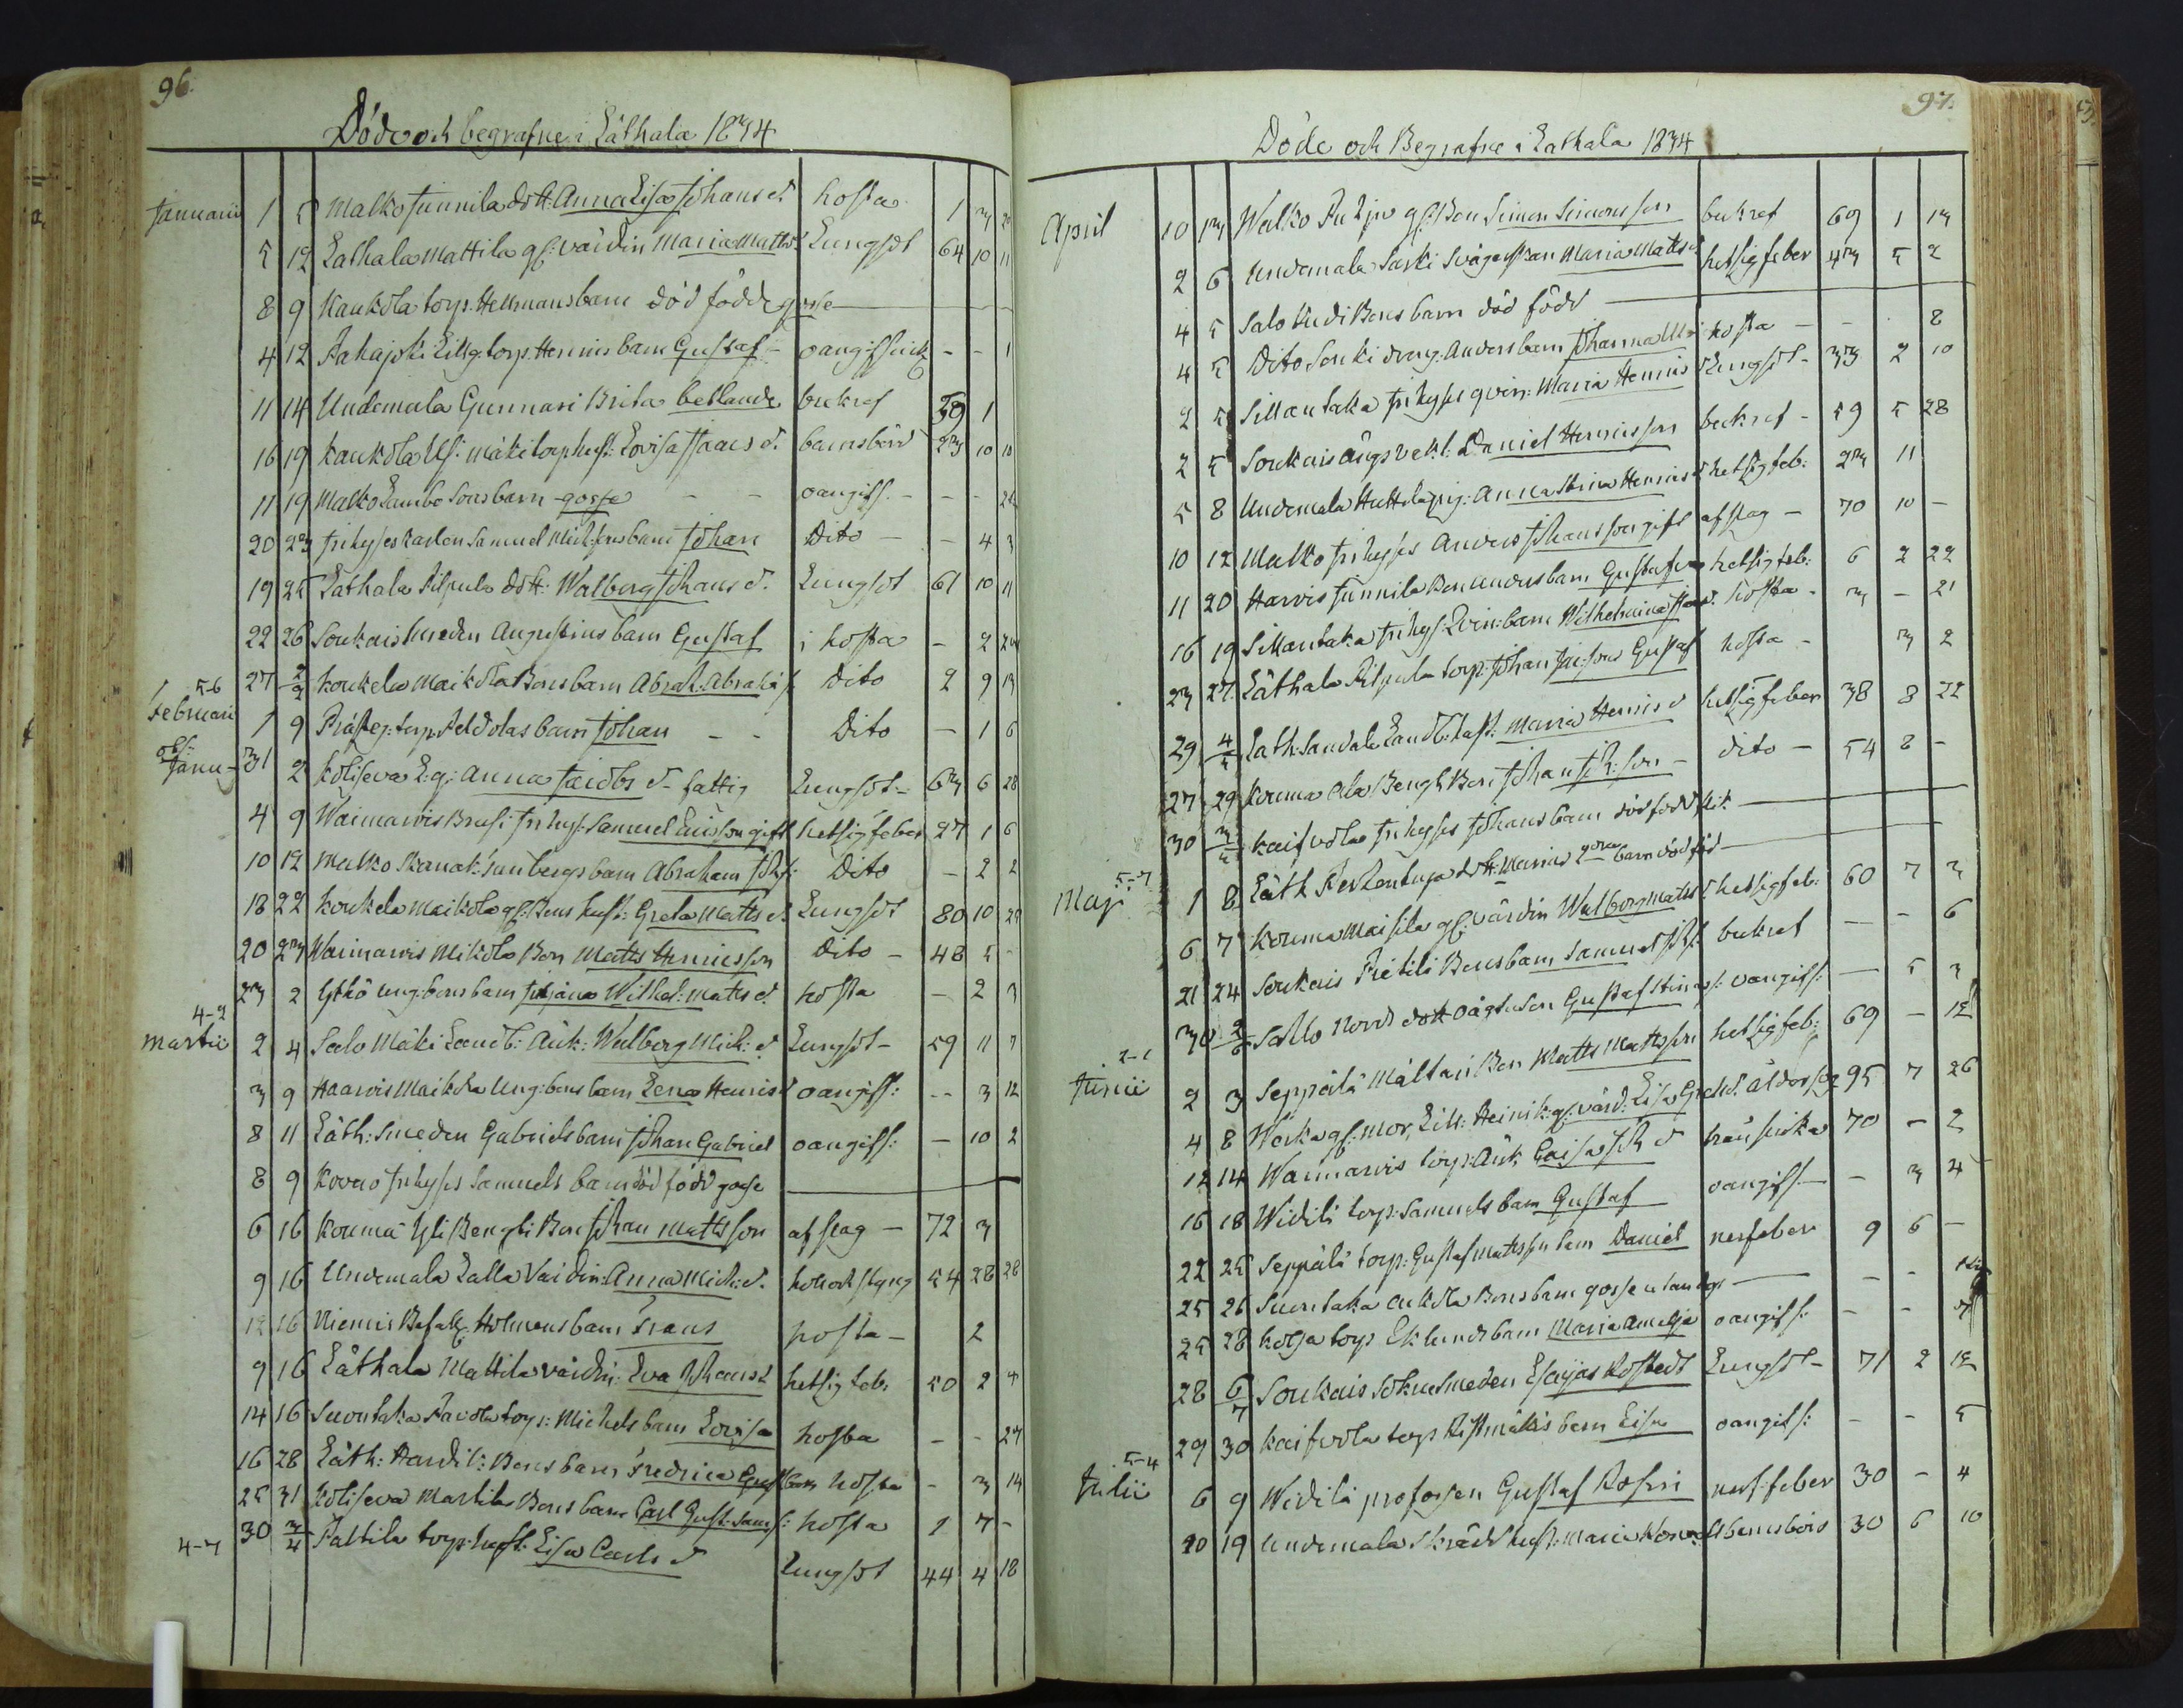 96.
Döde och begrafne i Låthala 1834
Januarii 1 5 Malko Junnila dott: Anna Lisa Johans d. hosta 1 3 20
5 12 Lathala Mattila gl: värdin Maria Matts d Lungsot 64 10 11
8 9 Kaukola torp. Hellmans barn död född gosse
4 12 Pahajoki Lillg. torp. Henrics barn Gustaf - oangif sjuk - - 1
11 14 Undamala Gunnari Brita betlande bukref 59 1
16 19 Kaukola Uf: mäki torp hust: Lovisa Isaacs d. barnsbörd 23 10 10
11 19 Malko Lambo Sons barn gosse - - oangifs. - - - 22
20 23 Inhyses karlen Samuel Mich:sons barn Johan Dito - - 4 3
19 25 Lathala Pilpula dott: Walborg Johans d. Lungsot 61 10 11
22 26 Soukais Smeden Augustins barn Gustaf i hosta - 2 24
5-6 27 2/2 Koukela Maikola Bons barn Abrah: Abrahs: Dito 2 9 13
Februari 1 9 Prästeg: torp. Peldolas barn Johan - - Dito - 1 6
Janu- 31 2 Koliseva E.g: Anna Jacobs d - fattig Lungsot - 63 6 28
4 9 Waimarois Brusi Inhys. Samuel Ericsson gift hetsig feber 27 1 6
10 12 Malko Skanak: Sanbergs barn Abraham Joh: Dito - 2 2
18 22 Koukela Maikola gl: Bons hust: Greta Matts d. Lungsot 80 10 25
20 23 Waimarois Mikola Bon Matts Henricsson Dito - 48 5 -
23 2 Ylkö ung: bons barn Wilhel: Matts d. hosta - 2 3
4-2
Martii 2 4 Salo Mäki Landb: Änk: Walborg Mich: d Lungsot - 59 11 7
3 9 Haarois Maikola Ung: bons barn Lena Henrics d oangifs: -- 3 12
8 11 Låth: Smeden Gabriels barn Johan Gabriel oangifs: - 10 2
8 9 Kovero Inhyses Samuels barn död född gosse
6 16 Kouma Yli Bengti Bon Johan Mattsson af slag - 72 3
9 16 Undamala Lalla Värdin: Anna Mich: d. håll och styng 54 28 28
12 16 Niemis Befalg. Holmens barn Frans hosta - 2
9 16 Låthala Mattila värdin: Eva Johans d hetsig feb. 50 2 4
14 16 Suontaka Pavola torp: Michels barn Lovisa hosta - - 27
16 28 Låth: Hardil: Bons barn Fredrica Gust barn hosta - 3 14
25 31 Koliseva Martila Bons barn Carl Gust: Sams: hosta 1 7 -
4-7 30 3/4 Paltila torp: hust: Lisa Carls d Lungsot 44 4 18
97.
Döde och Begrafne i Lathala 1834
April 10 13 Malko gl: Bon Simon Simonsson bukref 69 1 13
2 6 Undamala Sarki Svågerskan Maria Matts d. hetsig feber 43 5 2
4 5 Salo Uudi Bons barn död född
4 5 Dito Souki dreng: Anders barn Johanna hosta - - - 8
2 5 Sillantaka Inhyses qvin: Maria Henrics d Lungsot - 33 2 10
2 5 Soukais Daniel Henricsson bukref - 59 5 28
5 8 Undamala Huttila pig: Anna Stina Henrics d hetsig feb: 23 11
10 12 Malko Inhyses Anders Johansson gift af slag - 70 10 -
11 20 Harois Junnila Bon Anders barn Gustafva hetsig feb: 6 2 22
16 19 Sillantaka Inhys: Qvin: barn Wilhelmina d. hosta - 3 - 21
23 27 Låthala Pilpula torp: Johan sons Gustaf hosta - 3 2
29 4/5 Lath: Sandala Landb: hust: Maria Henrics d hetsig feber 38 8 22
27 29 Kouma Ala Bengt: Bon Johan Joh: son - dito - 54 8 -
30 3/5 Kaifvola Inhyses Johans barn död född flik:
5-7
Maji 1 8 Låth dott: Marias barn död född
6 7 Kouma Maisila gl: värdin Walborg Matts d hetsig feb: 60 7 3
21 24 Soukais Prettili Bons barn Samuel Joh: bukref - - 6
30 2/6 Sallo Nord dott oägta son Gustaf oangifs: - 5 3
2-1
Junii 2 3 Seppälä Mältari Bon Matts Mattsson hetsig feb: 69 - 12
4 8 Warka gl: Mor, Lill: Heinik: gl: värd: Lisa d. ålders sv 95 7 26
12 14 Waimarois torp: Änk Caisa Joh d bränsjuka 70 - 2
16 18 Widili torp: Samuels barn Gustaf oangifs - - 3 4
22 25 Seppälä torp: Gustaf Mattsson barn Daniel nerffeber 9 6 -
25 26 Suontaka Aukola Bons barn gosse - -
25 28 Kolja torp Eklunds barn Maria Amalja oangifs: - - 4
28 6/7 Soukais Sokne smeden Esaijas Rostedt Lungsot - 71 2 12
29 30 Kaifvola torp Ristimäkis barn Lisa oangifs: - - 5
5-4
Julii 6 9 Widilä profossen Gustaf Rossi nerf-feber 30 - 4
10 19 Undamala Skrädd: hust: Maria barnsbörd 30 6 10